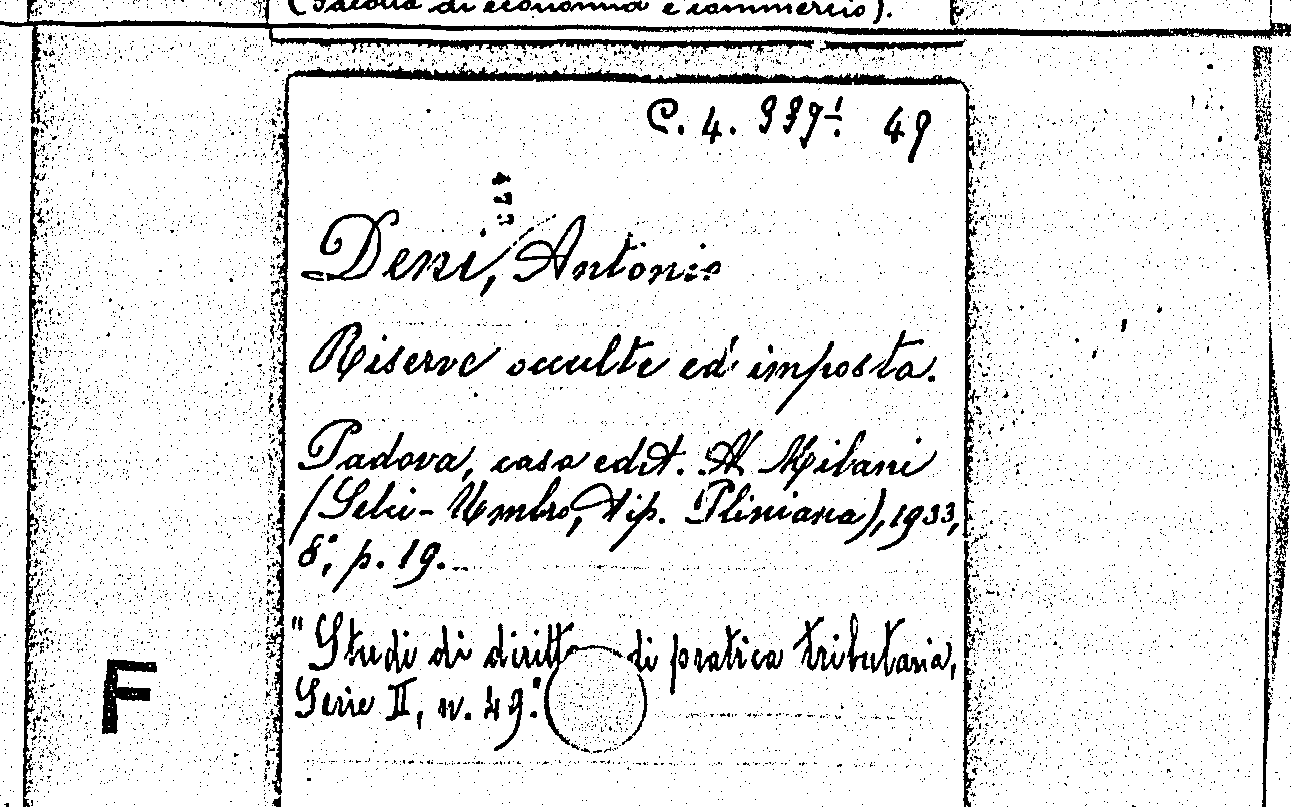 (Facoltà di economia e commercio).
C. 4. 337¹. 49
Deni, Antonio
Riserve occulte ed imposta.
Padova, casa edit. A. Milani
(Selci-Umbro, tip. Pliniana), 1933,
8°, p. 19.
"Studi di diritto di pratica tributaria,
Serie II, n. 49."
F